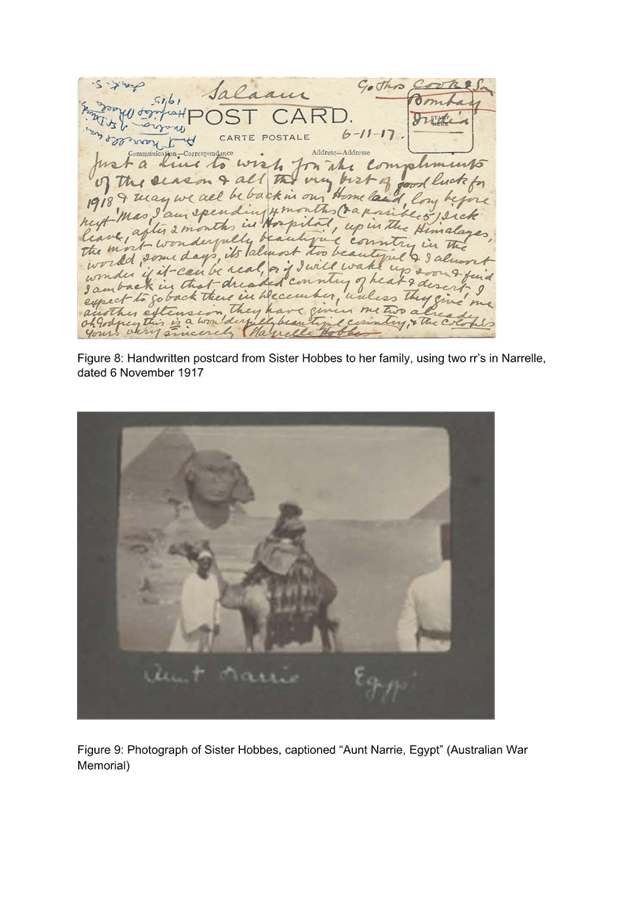 Salaam
C/o Thos Cook & Son
Bombay
India
POST CARD.
CARTE POSTALE
6-11-17.
Communication—Correspondance
Address—Addresse
Just a line to wish you the compliments
of the season & all the very best of good luck for
1918 & may we all be back in our Home land, long before
next Mas, I am spending 4 months (& a possible 5) sick
leave, after 2 months in Hospital, up in the Himalayas,
the most wonderfully beautiful country in the
world, some days, its almost too beautiful & I almost
wonder if it can be real, or if I will wake up soon & find
I am back in that dreaded country of heat & desert. I
expect to go back there in December, unless they give me
another extension, they have given me two already
oh Godfrey this is a wonderfully beautiful country, & the colors
yours very sincerely Narrelle Hobbes
Figure 8: Handwritten postcard from Sister Hobbes to her family, using two rr's in Narrelle,
dated 6 November 1917
Aunt Narrie Egypt
Figure 9: Photograph of Sister Hobbes, captioned “Aunt Narrie, Egypt” (Australian War
Memorial)